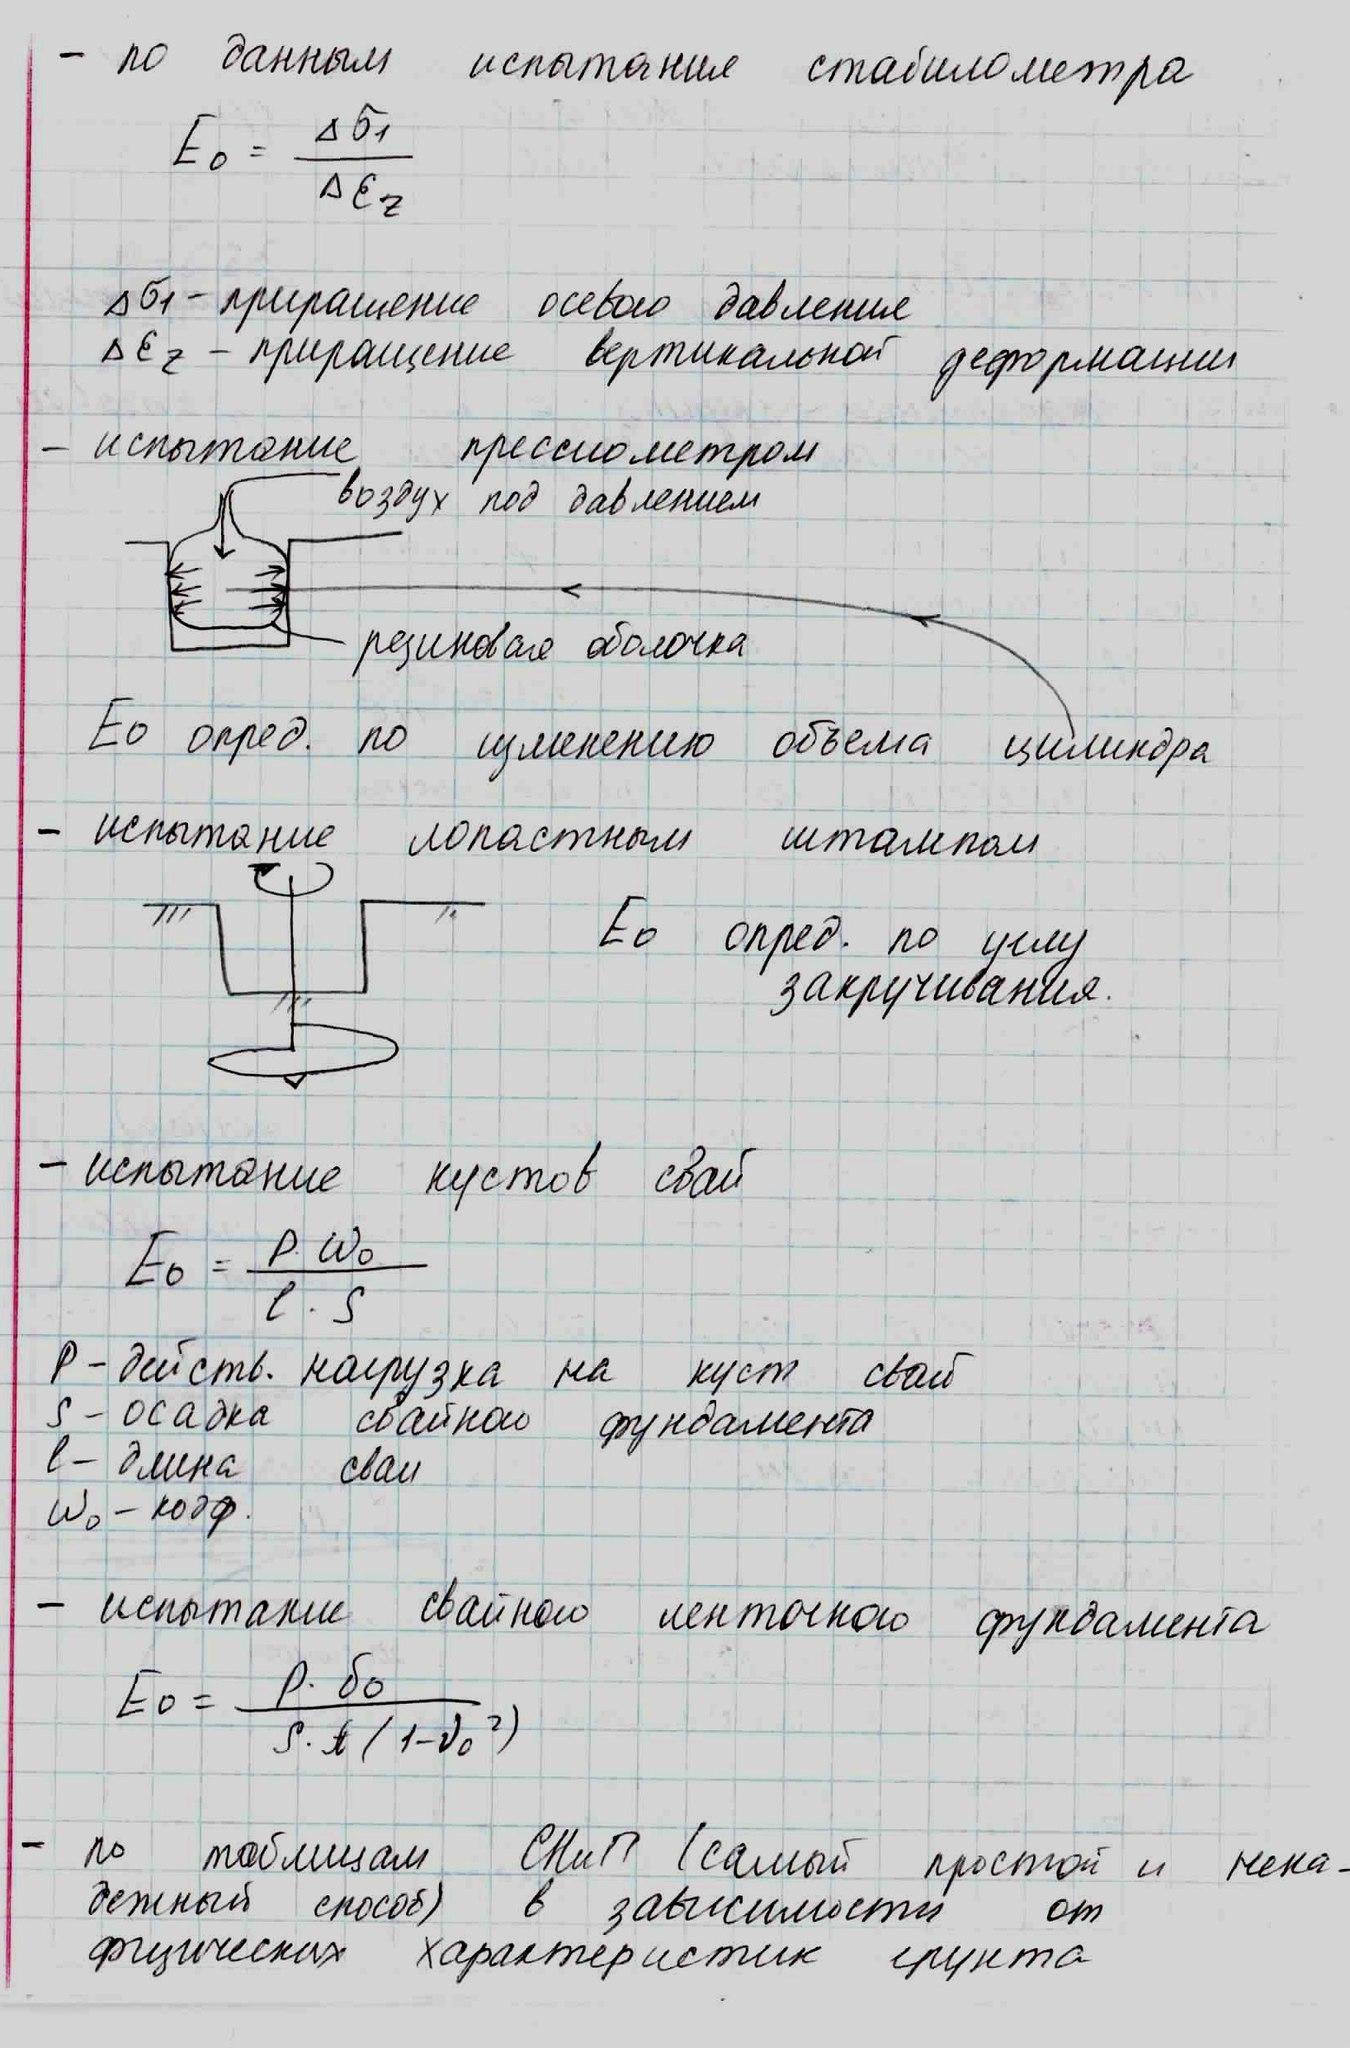 - по данным испытания стабилометра
E₀ = Δσ₁ / Δε_z
Δσ₁ - приращение осевого давления
Δε_z - приращение вертикальной деформации
- испытание прессиометром
воздух под давлением
резиновая оболочка
E₀ опред. по изменению объема цилиндра
- испытание лопастным штампом
E₀ опред. по углу
закручивания.
- испытание кустов свай
E₀ = P·ω₀ / l·S
P - действ. нагрузка на куст свай
S - осадка свайного фундамента
l - длина сваи
ω₀ - коэф.
- испытание свайного ленточного фундамента
E₀ = P·δ₀ / S·π(1-ν₀²)
- по таблицам СНиП (самый простой и нена-
дежный способ) в зависимости от
физических характеристик грунта